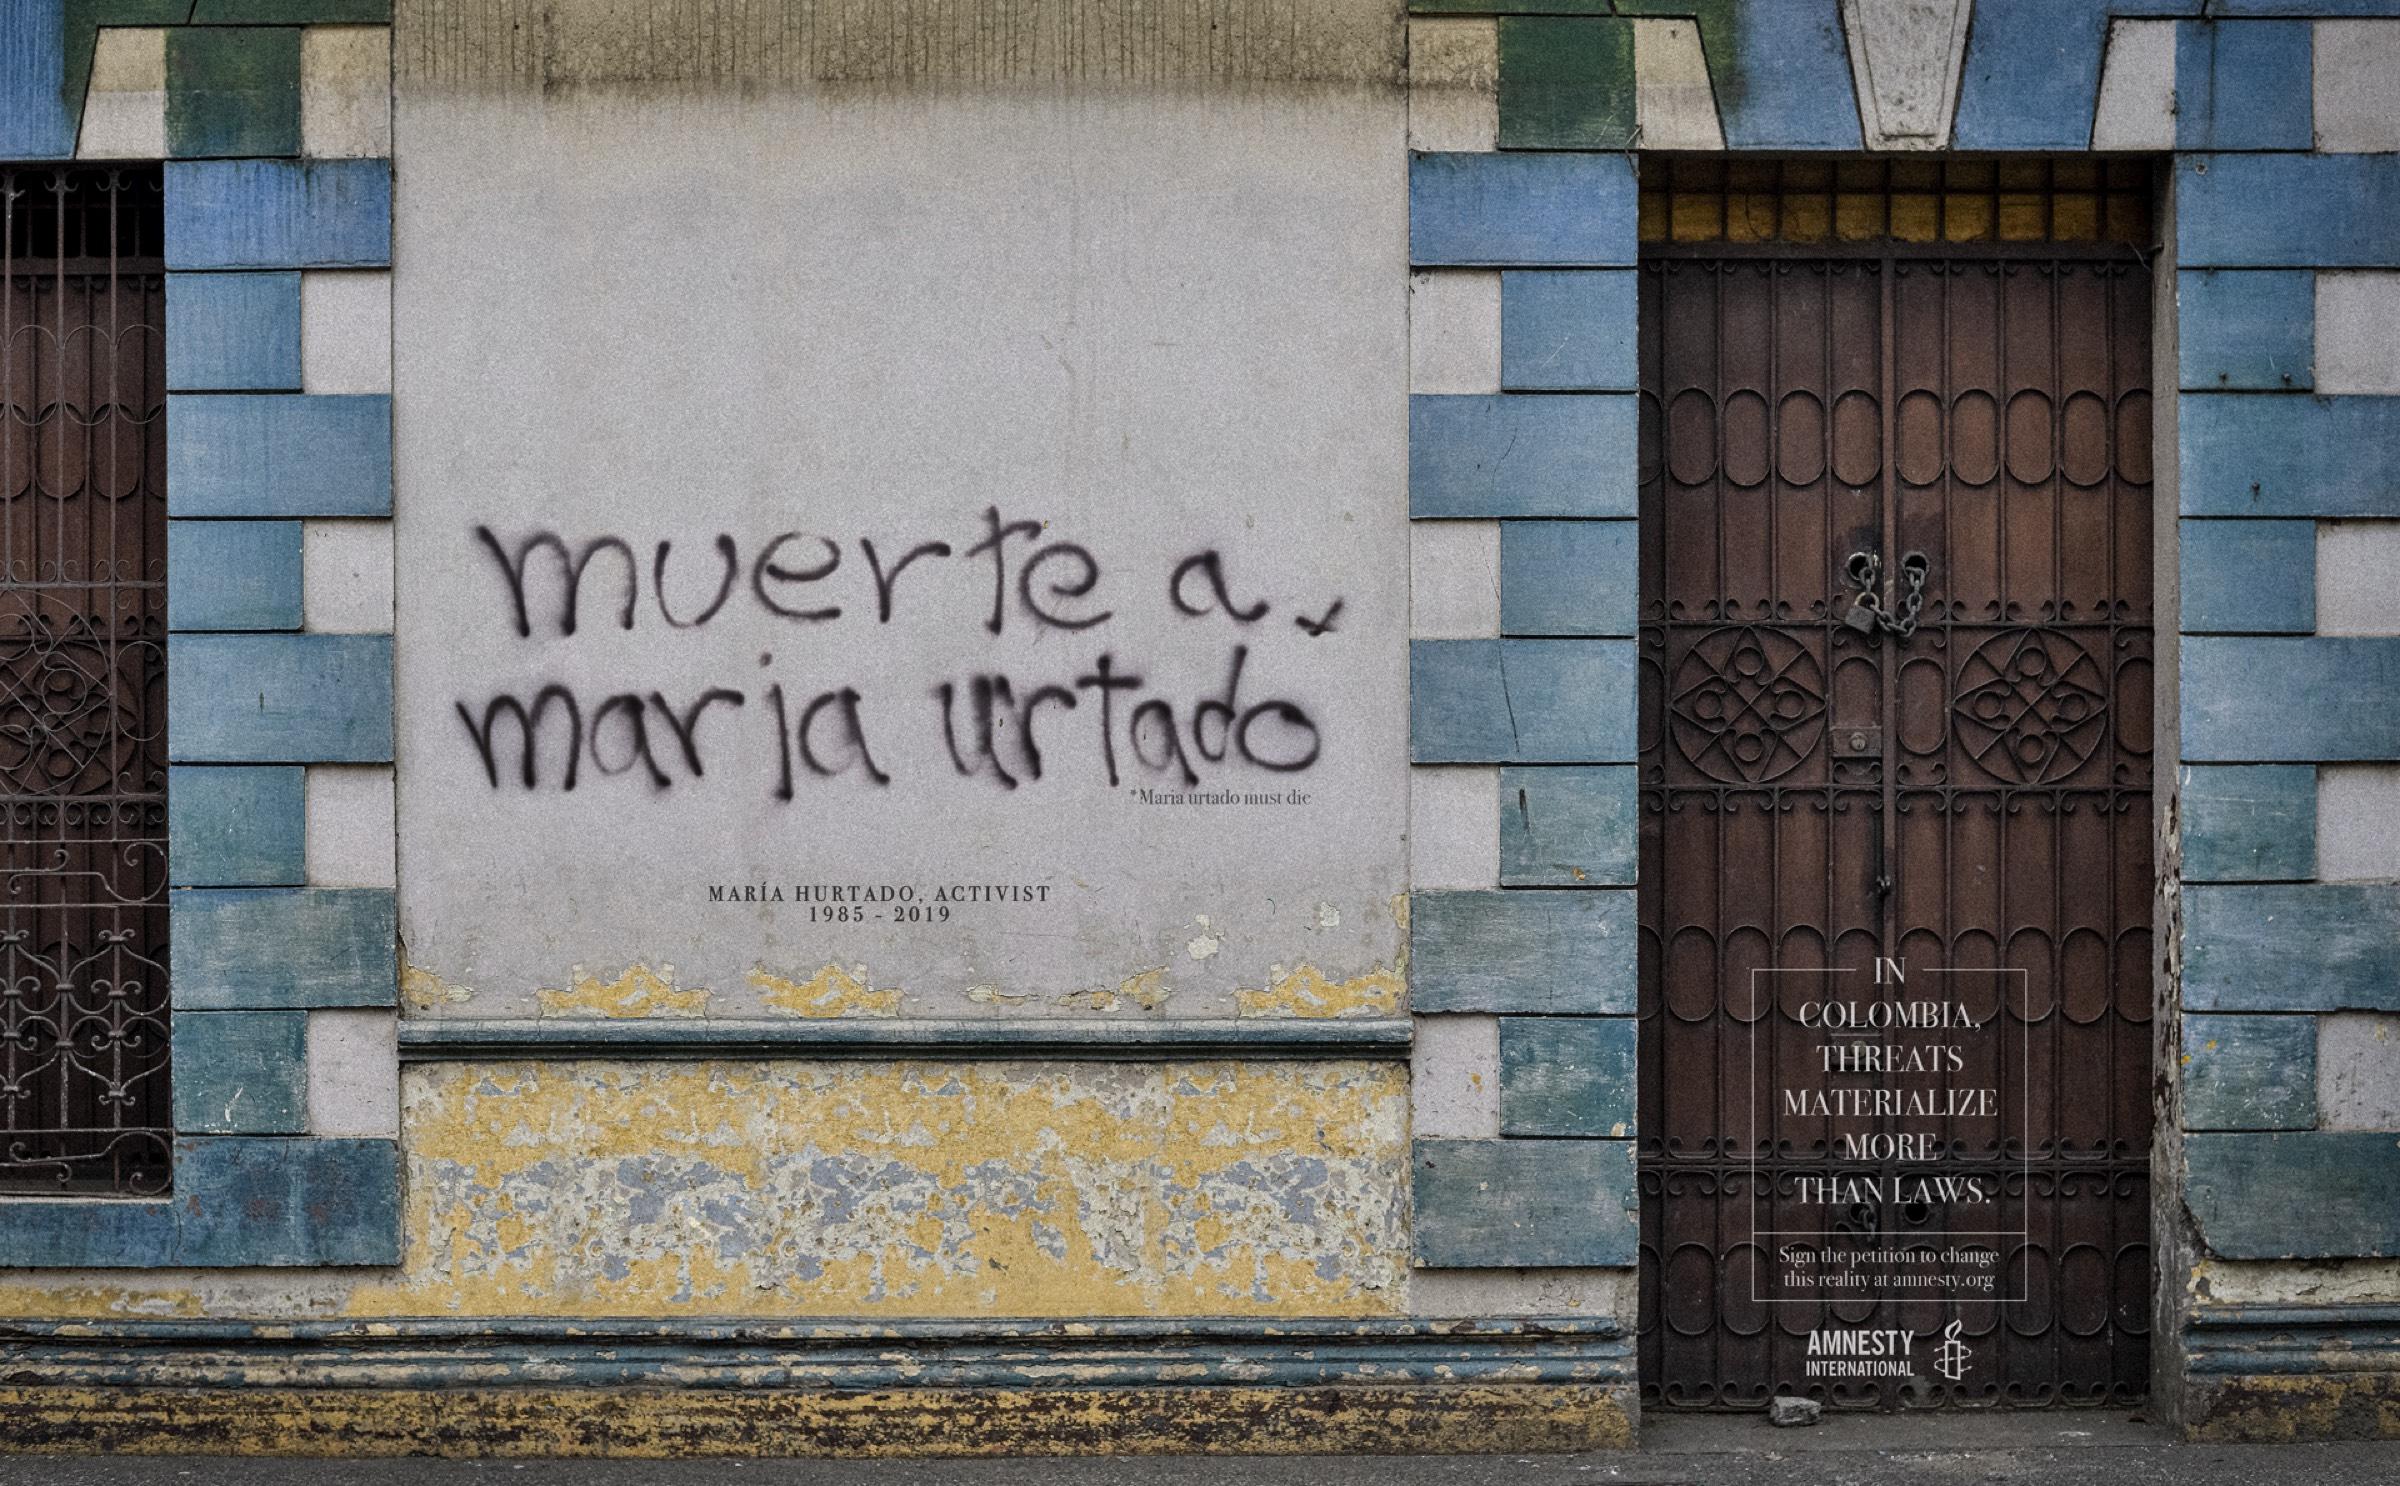 muerte a
maria urtado
*Maria urtado must die
MARÍA HURTADO, ACTIVIST
1985 - 2019
IN
COLOMBIA,
THREATS
MATERIALIZE
MORE
THAN LAWS.
Sign the petition to change
this reality at amnesty.org
AMNESTY
INTERNATIONAL